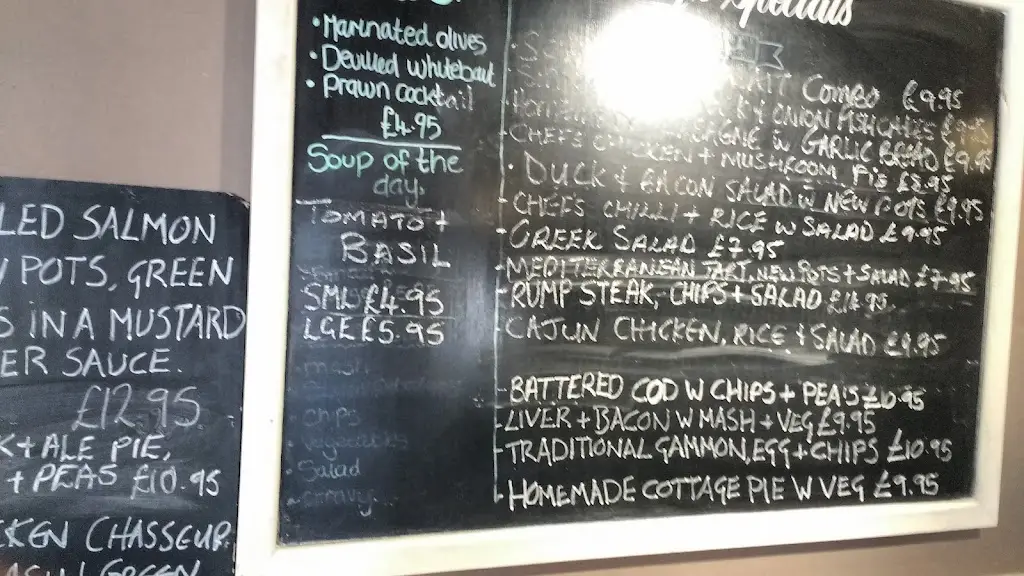 LED SALMON
POTS, GREEN
S IN A MUSTARD
ER SAUCE.
£12.95
K + ALE PIE,
+ PEAS £10.95
CKEN CHASSEUR
GREEN
• Marinated olives
• Devilled whitebait
• Prawn cocktail
£4.95
Soup of the
day.
TOMATO +
BASIL
SML £4.95
LGE £5.95
mash
chips
vegetables
Salad
Specials
Combo £9.95
ONION
CHEFS W GARLIC BREAD £9.95
CHICKEN + MUSHROOM PIE £8.95
• DUCK & BACON SALAD W NEW POTS £9.95
CHEFS CHILLI + RICE W SALAD £9.95
GREEK SALAD £7.95
MEDITERRANEAN TART, NEW POTS + SALAD £7.95
RUMP STEAK, CHIPS + SALAD
CAJUN CHICKEN, RICE & SALAD £9.95
BATTERED COD W CHIPS + PEAS £10.95
LIVER + BACON W MASH + VEG £9.95
TRADITIONAL GAMMON, EGG + CHIPS £10.95
HOMEMADE COTTAGE PIE W VEG £9.95